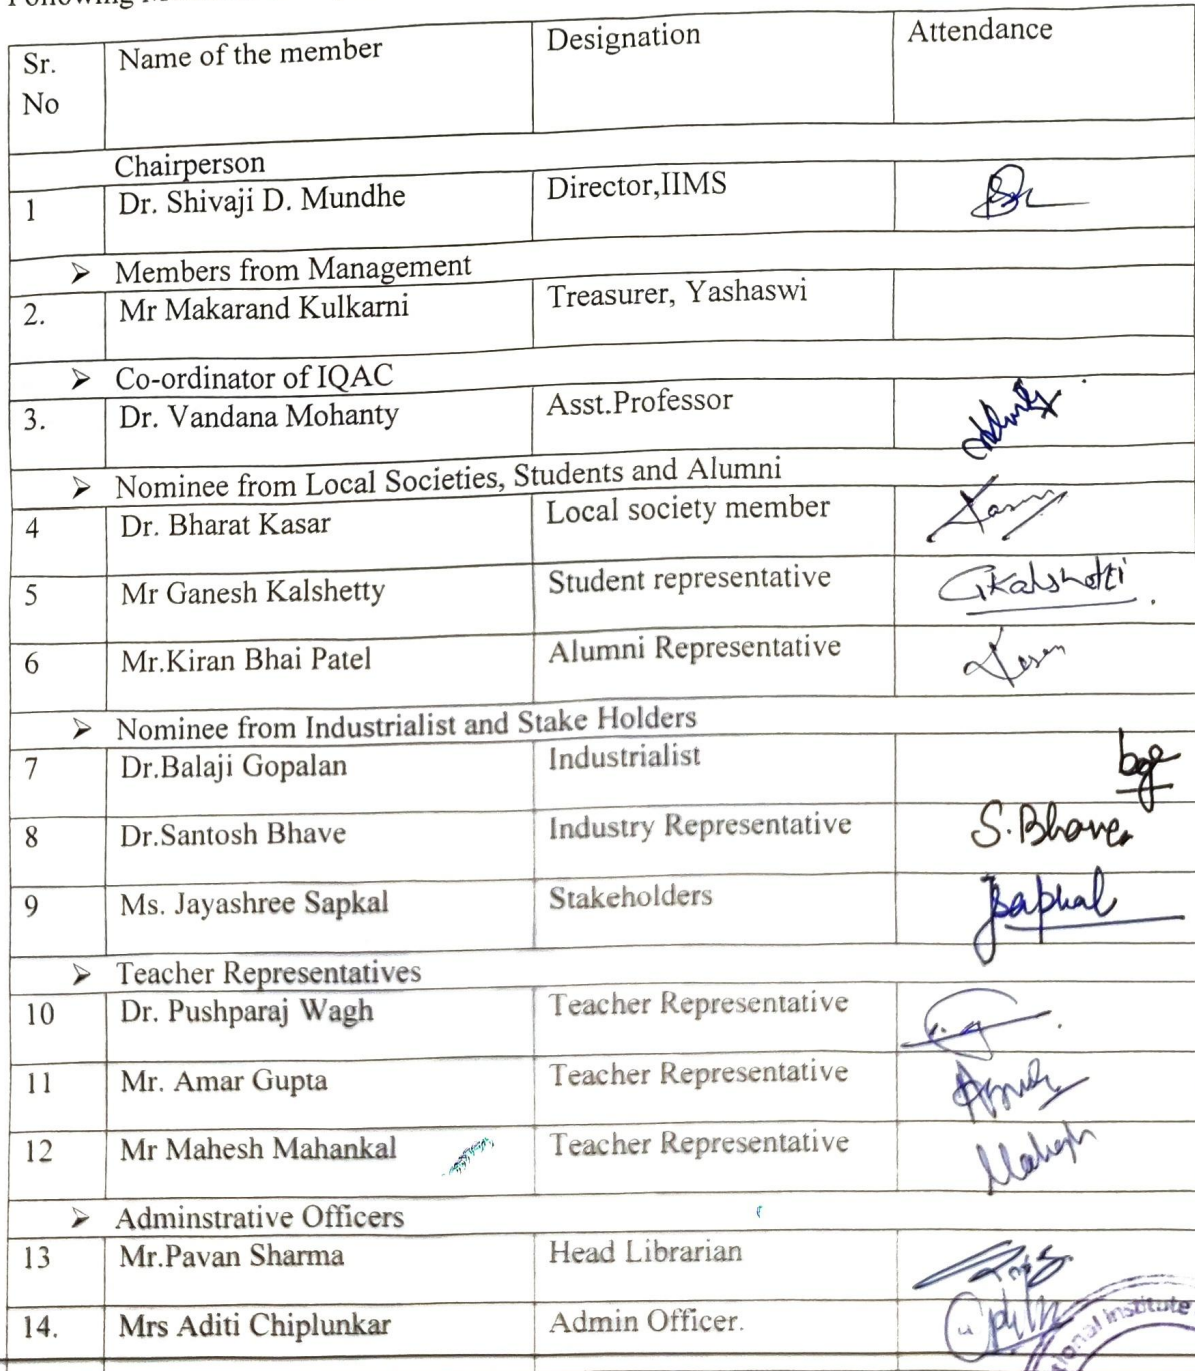 Following
Sr. No Name of the member Designation Attendance
Chairperson
1 Dr. Shivaji D. Mundhe Director,IIMS
➢ Members from Management
2. Mr Makarand Kulkarni Treasurer, Yashaswi
➢ Co-ordinator of IQAC
3. Dr. Vandana Mohanty Asst.Professor
➢ Nominee from Local Societies, Students and Alumni
4 Dr. Bharat Kasar Local society member
5 Mr Ganesh Kalshetty Student representative GKalshetti
6 Mr.Kiran Bhai Patel Alumni Representative
➢ Nominee from Industrialist and Stake Holders
7 Dr.Balaji Gopalan Industrialist
8 Dr.Santosh Bhave Industry Representative S.Bhave
9 Ms. Jayashree Sapkal Stakeholders JSapkal
➢ Teacher Representatives
10 Dr. Pushparaj Wagh Teacher Representative
11 Mr. Amar Gupta Teacher Representative
12 Mr Mahesh Mahankal Teacher Representative Mahesh
➢ Adminstrative Officers
13 Mr.Pavan Sharma Head Librarian
14. Mrs Aditi Chiplunkar Admin Officer.
tional Institute